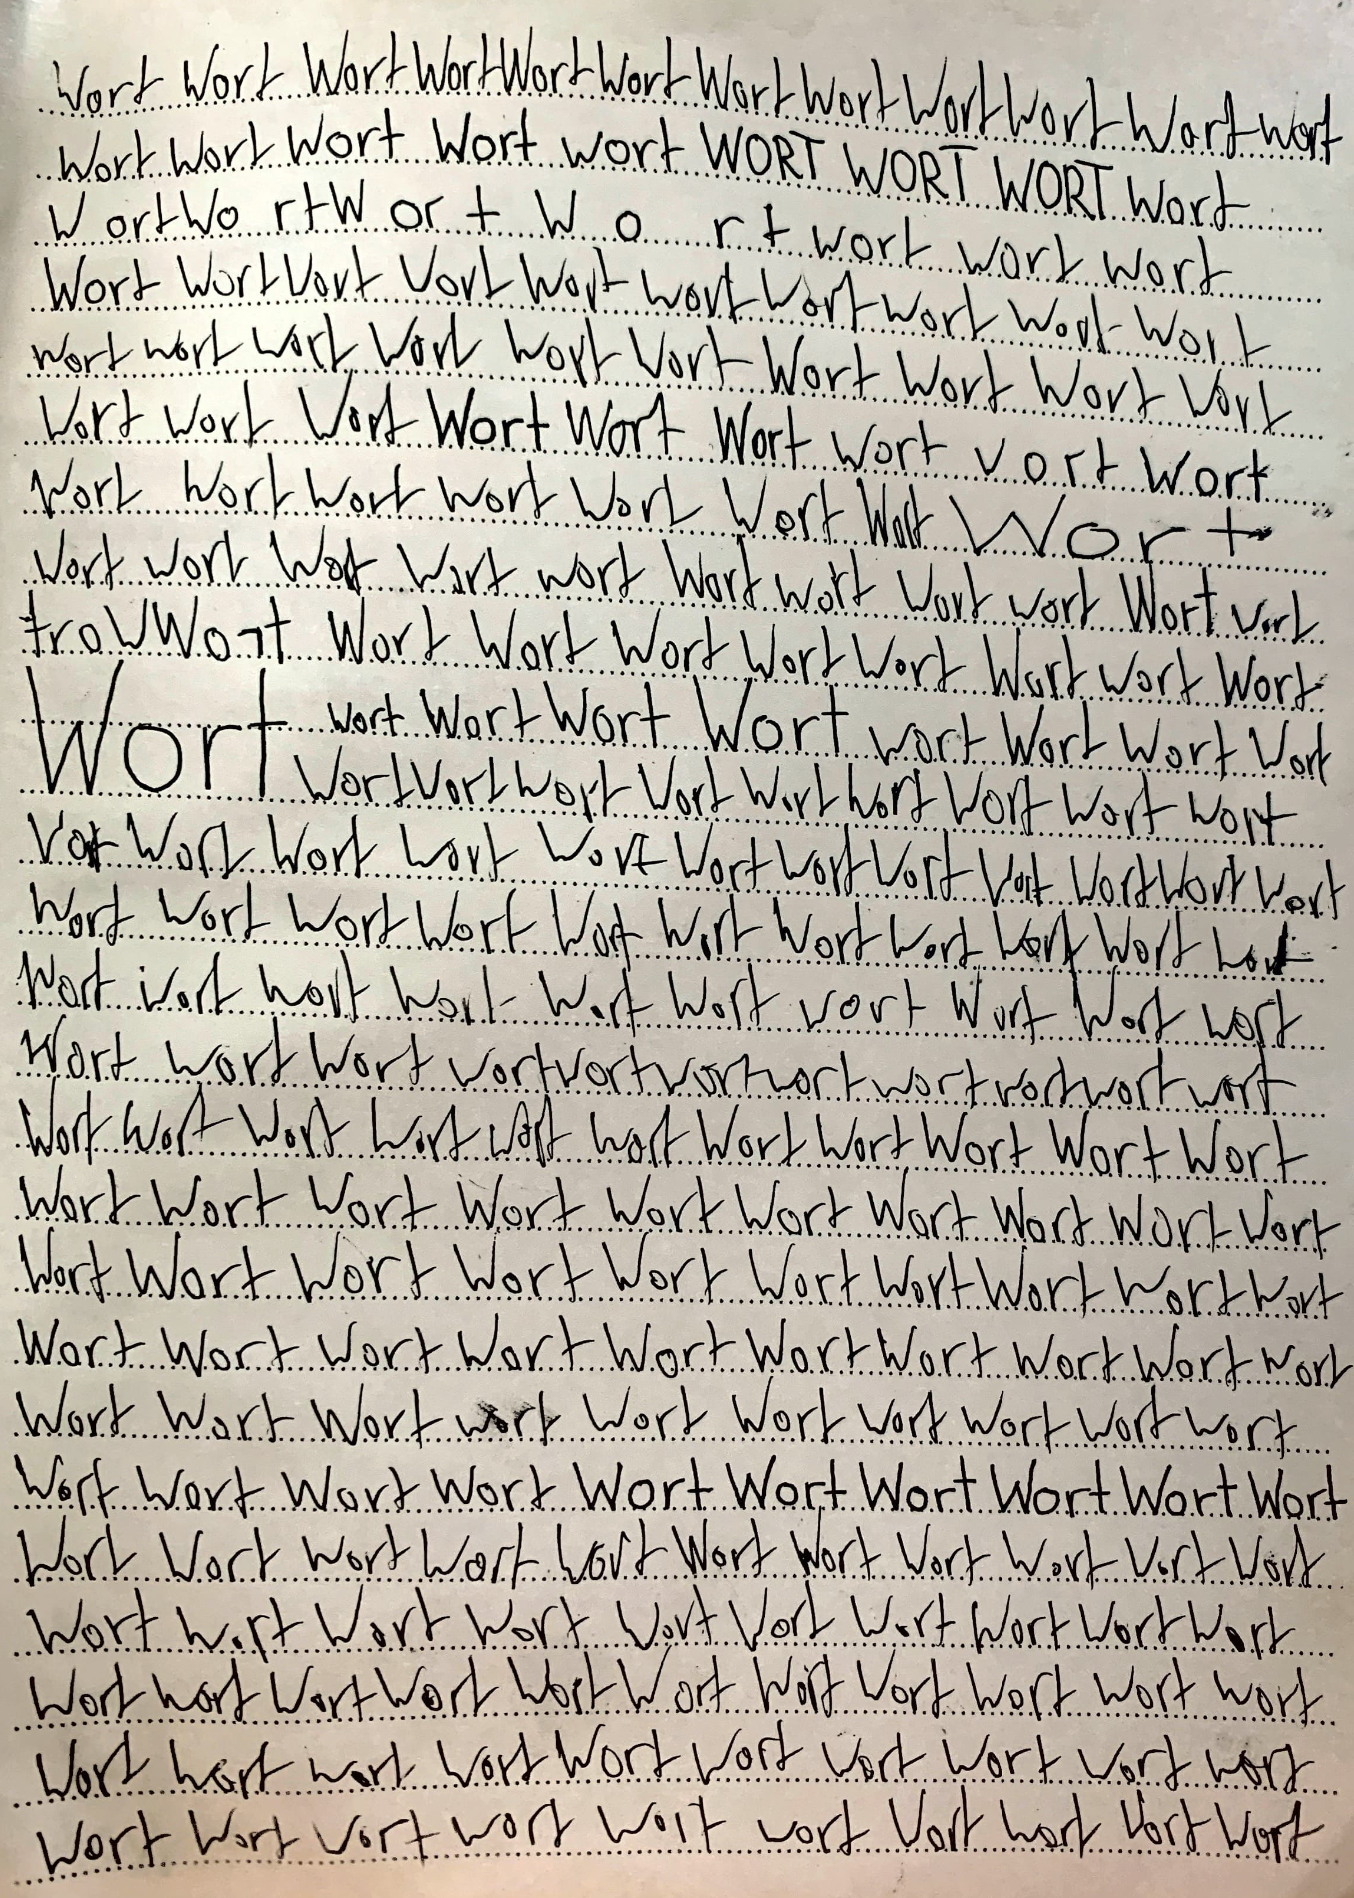 Wort Wort Wort Wort Wort Wort Wort Wort Wort Wort Wort Wort
Wort Wort Wort Wort Wort WORT WORT WORT Wort
W ort Wo rt W or t W o r t wort wort wort
Wort Wort Wort Wort Wort wort Wort Wort Wort Wort
wort wort wort Wort Wort Wort Wort Wort Wort Wort
Wort Wort Wort Wort Wort Wort Wort Wort Wort
Wort Wort Wort Wort Wort Wort Wort Wort
Wort wort Wort Wort wort Wort wort Wort wort Wort wort
troW Wort Wort Wort Wort Wort Wort Wort Wort Wort
Wort wort Wort Wort Wort wort Wort Wort Wort
Wort Wort Wort Wort Wort Wort Wort Wort Wort
Wort Wort Wort Wort Wort Wort Wort Wort Wort Wort Wort Wort
Wort Wort Wort Wort Wort Wort Wort Wort Wort Wort Wort
Wort Wort Wort Wort Wort Wort wort Wort Wort Wort
Wort Wort Wort wort wort wort wort wort wort wort wort
Wort Wort Wort Wort Wort Wort Wort Wort Wort Wort Wort
Wort Wort Wort Wort Wort Wort Wort Wort Wort Wort
Wort Wort Wort Wort Wort Wort Wort Wort Wort Wort
Wort Wort Wort Wort Wort Wort Wort Wort Wort Wort
Wort Wort Wort wort Wort Wort Wort Wort Wort Wort
Wort Wort Wort Wort Wort Wort Wort Wort Wort Wort
Wort Wort Wort Wort Wort Wort Wort Wort Wort Wort Wort
Wort Wort Wort Wort Wort Wort Wort Wort Wort Wort
Wort Wort Wort Wort Wort Wort Wort Wort Wort Wort Wort
Wort Wort Wort Wort Wort Wort Wort Wort Wort Wort
Wort Wort Wort Wort Wort wort Wort Wort Wort Wort